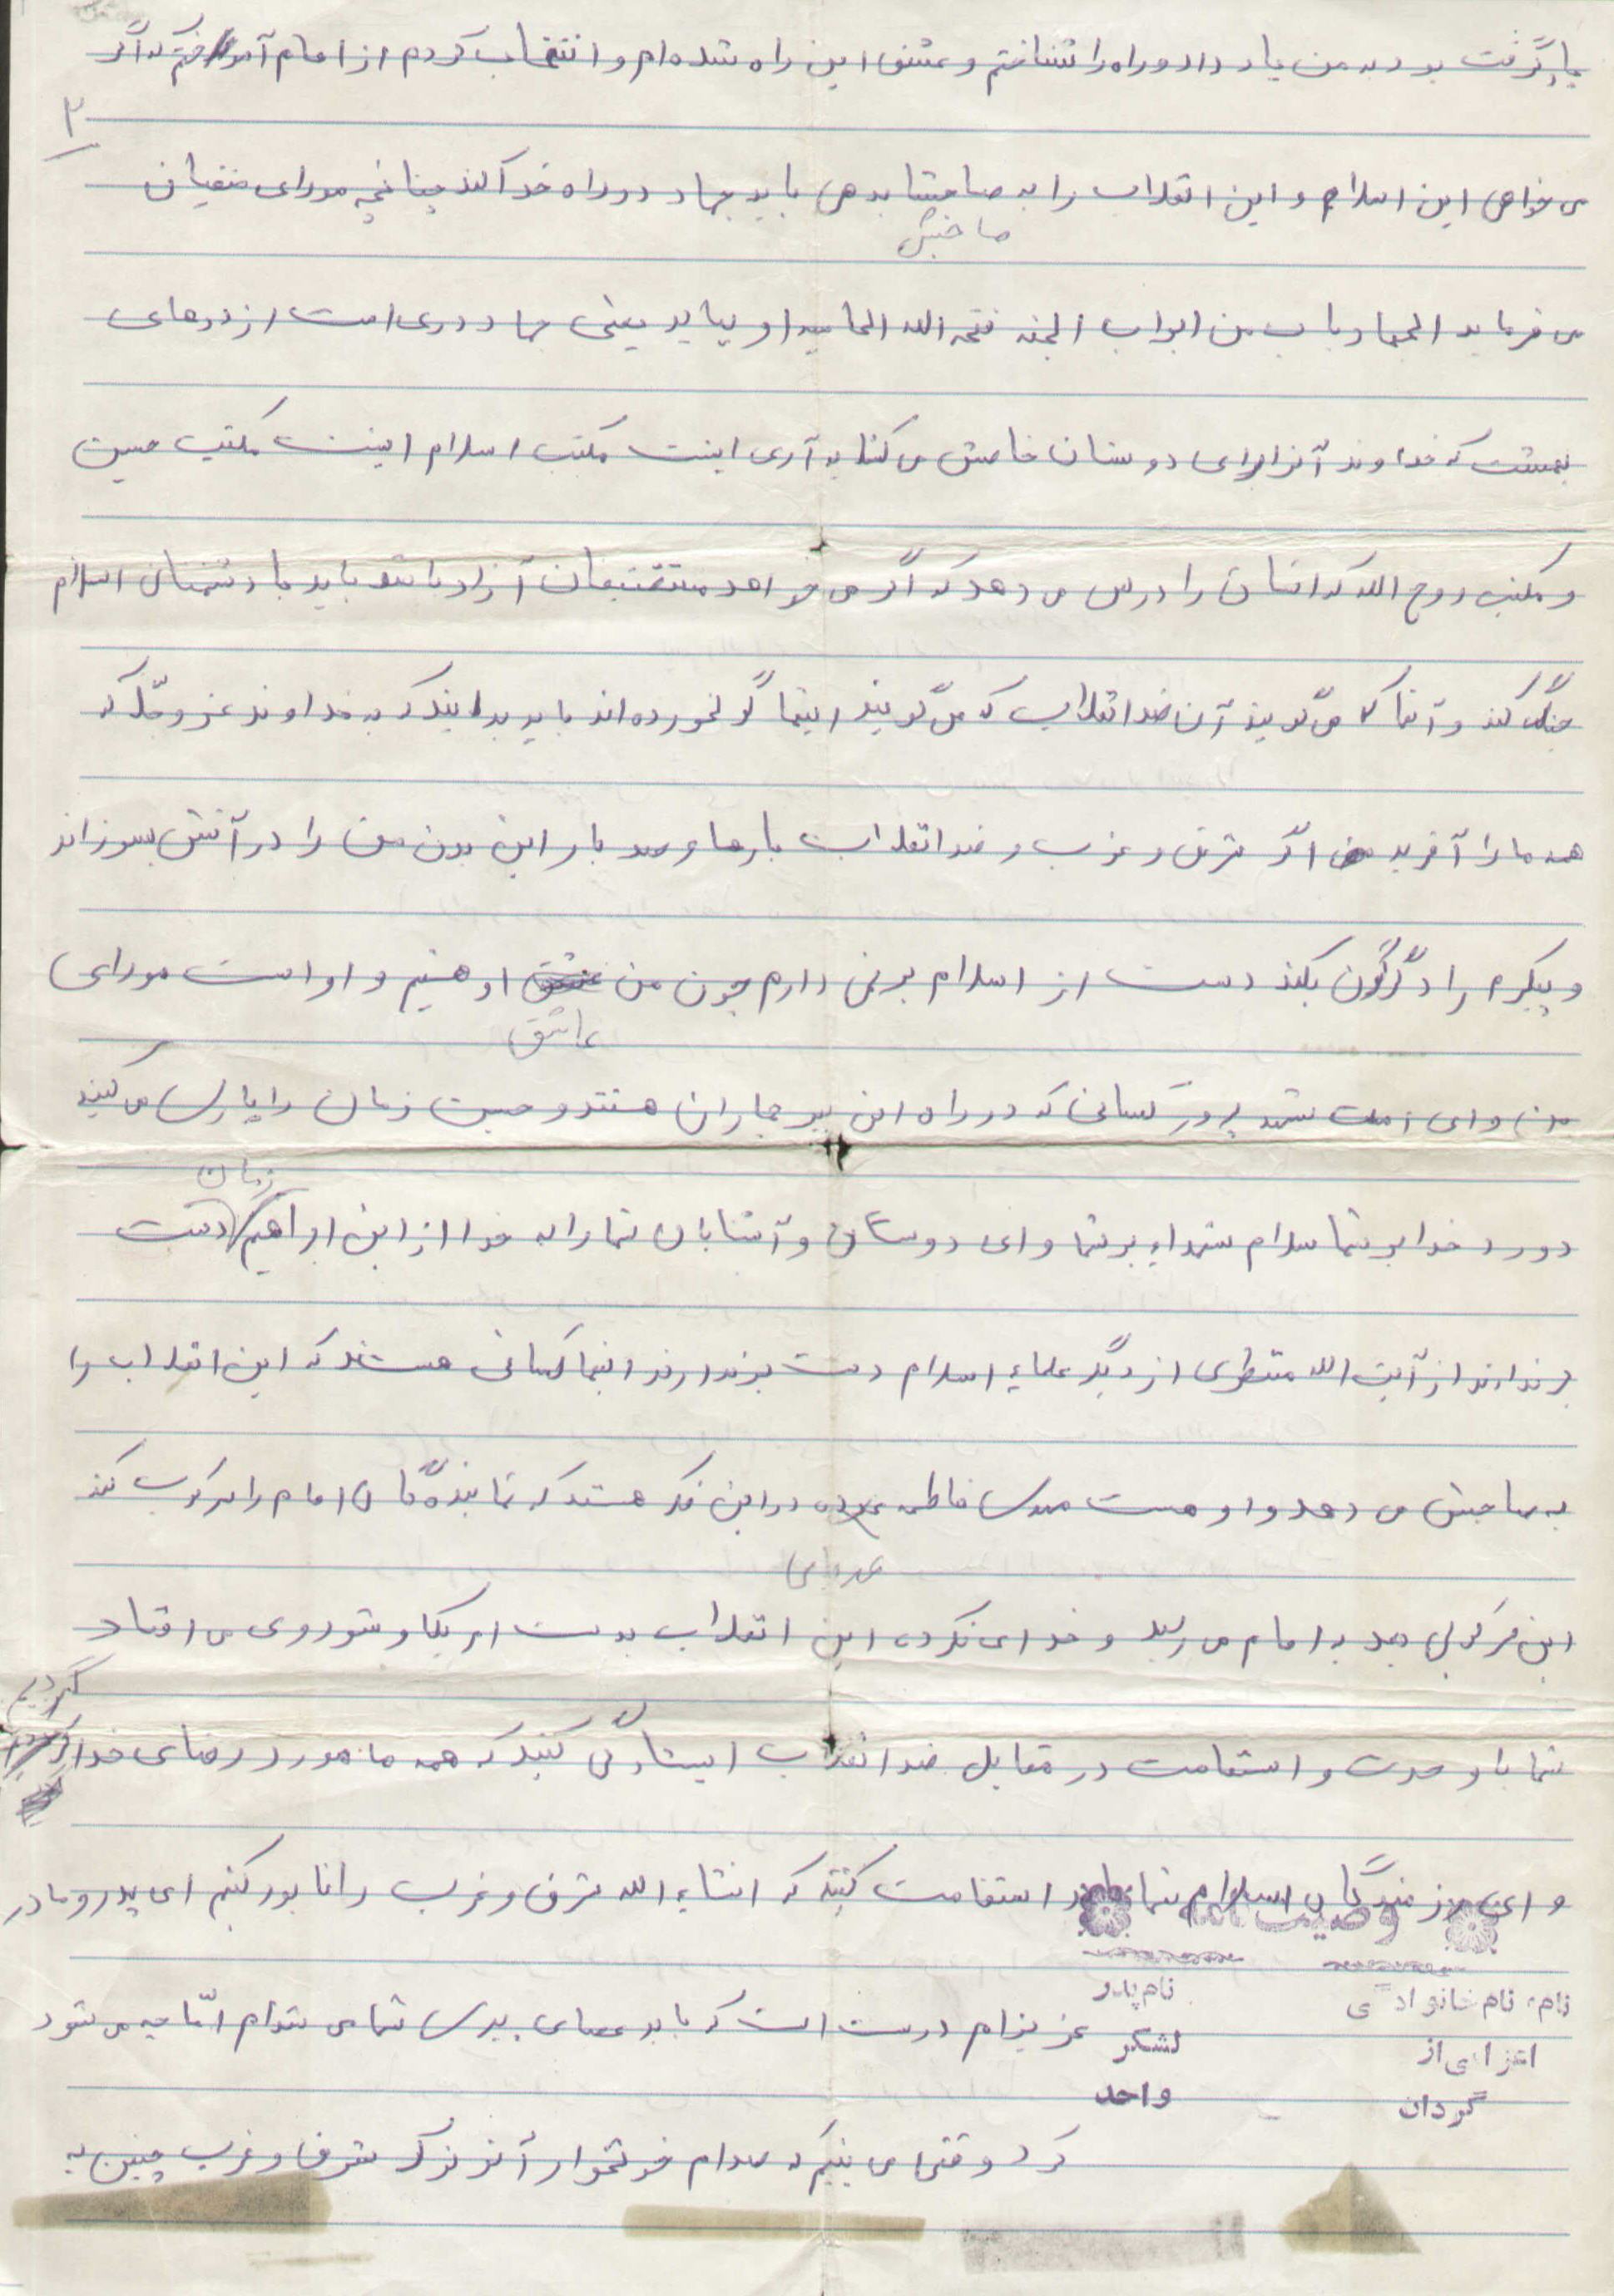 گرفت بود به من یاد داد و راه را شناختم و عشق این راه شده‌ام و انتخاب کردم از امام آموختم که اگر
۲
می خواهی این اسلام و این انقلاب را به صاحبش بدهی باید جهاد در راه خدا کند چنانچه مولای متقیان
صاحبش
می فرماید الجهاد باب من ابواب الجنه فتحه الله اولیایه یعنی جهاد دری است از درهای
بهشت که خداوند آنرا برای دوستان خاصش می کشاید آری اینست مکتب اسلام اینست مکتب حسین
و مکتب روح الله که انسان را درس می دهد که اگر می خواهد آزاد باشد باید با دشمنان اسلام
جنگ کند و آنها که می گویند آن ضد انقلاب که می گویند اینها گول خورده‌اند باید بدانید که به خداوند عزوجل که
همه ما را آفریده اگر شرق و غرب و ضد انقلاب بارها و صد بار این بدن من را در آتش بسوزاند
و پیکرم را دگرگون بکند دست از اسلام بر نمی دارم چون من او هستیم و او است مولای
عاشق
من و ای امت شهید پرور کسانی که در راه این پیر جماران هستند و حسین زمان را یاری می کنید
زمان
درود خدا بر شما سلام شهداء بر شما و ای دوستان و آشنایان شما را به خدا از این ابراهیم دست
برندارند از آیت الله منتظری از دیگر علماء اسلام دست برندارند اینها کسانی هستند که این انقلاب را
به صاحبش می دهد و او هست مهدی فاطمه در این فکر هستند که نماینده‌گان امام را سرکوب کند
این فر بعد به امام می رسد و خدای نکرده این انقلاب بدست امریکا و شوروی می افتاد
گردیم
شما با وحدت و استقامت در مقابل ضد انقلاب ایستادگی کنید که همه ما مورد رضای خدا
و ای رزمندگان اسلام شما استقامت کنید که انشاء الله شرق و غرب را نابود کنیم ای پدر و مادر
وصیت نامه
نام، نام خانوادگی نام پدر
عزیزام درست است که باید عصای پیری شما می شدام امّا چه می شود
اعزامی از لشکر
گردان واحد
کرد وقتی می بینیم که صدام خونخوار آن نوکر شرق و غرب چنین به